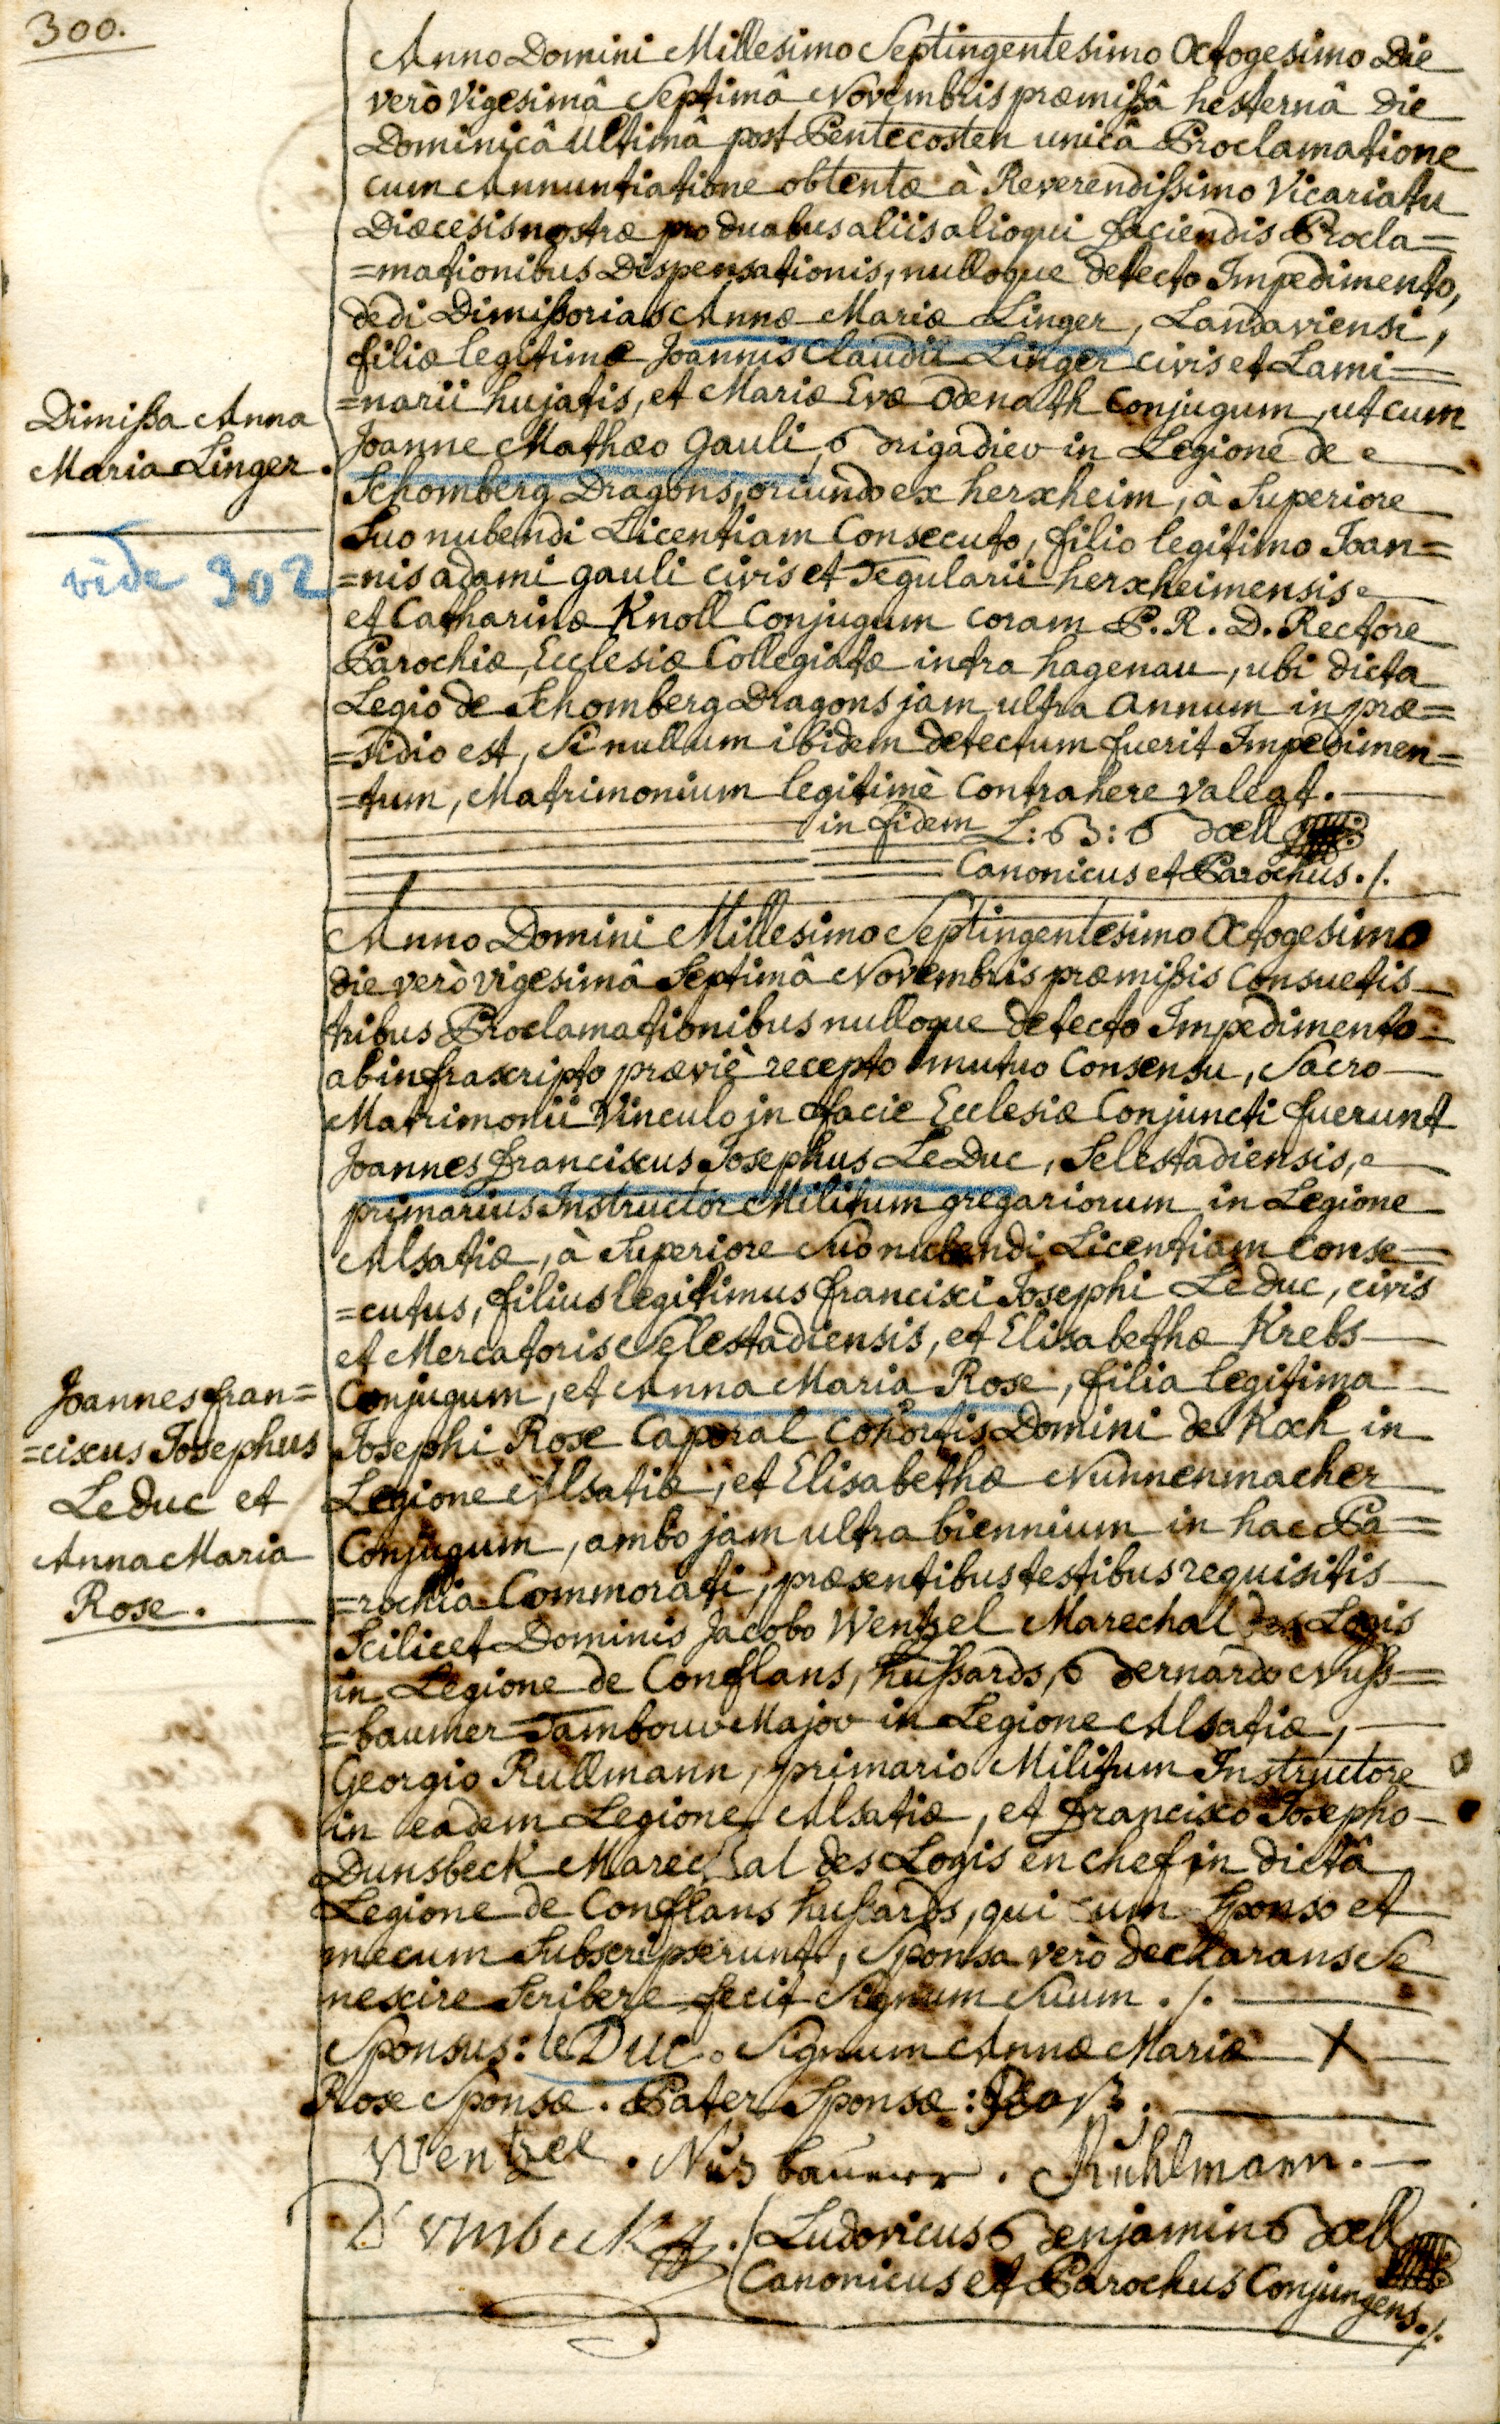 300.
Anno Domini Millesimo Septingentesimo Octogesimo Die
verò Vigesimâ Septimâ Novembris præmißâ hesternâ Die
Dominicâ Ultimâ post Pentecosten unicâ Proclamatione
cum Annuntiatione obtentæ à Reverendißimo Vicariatu
Diæcesis nostræ pro duabus aliis alioqui faciendis Procla=
=mationibus Dispensationis, nulloque detecto Impedimento,
dedi Dimißorias Annæ Mariæ Linger, Landaviensi,
filiæ legitimæ Joannis Claudii Linger civis et Lami=
=narii hujatis, et Mariæ Evæ Odenath Conjugum, ut cum
Joanne Mathæo Gauli, Brigadier in Legione de
Schomberg Dragons, oriundo ex herxheim, à Superiore
Suo nubendi Licentiam Consecuto, filio legitimo Joan=
=nis adami gauli civis et Tegularii herxheimensis
et Catharinæ Knoll Conjugum coram P. R. D. Rectore
Parochiæ Ecclesiæ Collegiatæ intra hagenau, ubi dicta
Legio de Schomberg Dragons jam ultra annum in præ=
=sidio est, Si nullum ibidem detectum fuerit Impedimen=
=tum, Matrimonium legitimè Contrahere valeat.
in fidem L: B: Böell
Canonicus et Parochus ./.
Dimißa Anna
Maria Linger.
vide 302
Anno Domini Millesimo Septingentesimo Octogesimo
die verò vigesimâ Septimâ Novembris præmißis Consuetis
tribus Proclamationibus nulloque detecto Impedimento
ab infrascripto præviè recepto mutuo Consensu, Sacro
Matrimonii Vinculo jn facie Ecclesiæ Conjuncti fuerunt
Joannes franciscus Josephus LeDuc, Selestadiensis,
primarius Instructor Militum gregariorum in Legione
Alsatiæ, à Superiore Suo nubendi Licentiam Conse=
=cutus, filius legitimus francisci Josephi Le duc, civis
et Mercatoris Selestadiensis, et Elisabethæ Krebs
Conjugum, et Anna Maria Rose, filia legitima
Josephi Rose Caporal Cohortis Domini de Koch in
Legione Alsatiæ, et Elisabethæ Nunnenmacher
Conjugum, ambo jam ultra biennium in hac Pa=
=rochia Commorati, præsentibus testibus requisitis
Scilicet Dominis Jacobo Wentzel Marechal des Logis
in Legione de Conflans, hußards, Bernardo Nuß=
=baumer Tambour Major in Legione Alsatiæ,
Georgio Rullmann, primario Militum Instructore
in eadem Legione Alsatiæ, et francisco Josepho
Dunsbeck Marechal des Logis en chef in dictâ
Legione de Conflans hußards, qui cum Sponso et
mecum Subscripserunt, Sponsa verò declarans Se
nescire Scribere fecit Signum Suum ./.
Joannes fran=
=ciscus Josephus
Le duc et
Anna Maria
Rose.
Sponsus: le Duc. Signum Annæ Mariæ X
Rose Sponsæ. Pater Sponsæ: Roß.
Wentzel. Nusbaumer. Ruhlmann.
Dunsbeck ./ Ludovicus Benjamin Böell
Canonicus et Parochus Conjungens ./.